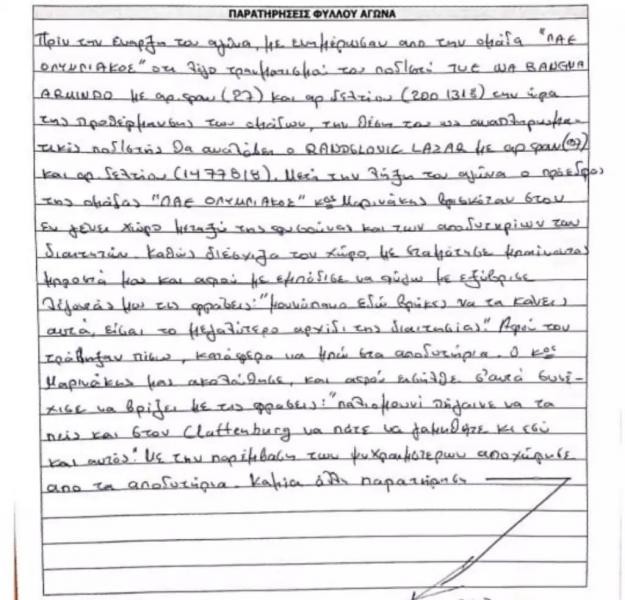 ΠΑΡΑΤΗΡΗΣΕΙΣ ΦΥΛΛΟΥ ΑΓΩΝΑ
Πρίν την έναρξη του αγώνα, με ενημέρωσαν απο την ομάδα "ΠΑΕ
ΟΛΥΜΠΙΑΚΟΣ" οτι λόγο τραυματισμού του ποδ/στή TUE NA BANGNA
ARMINDO με αρ.φαν (27) και αρ δελτίου (2001318) την ώρα
της προθέρμανσης των ομάδων, την θέση του ως αναπληρωμα-
τικός ποδ/στής θα αναλάβει ο RANDELOVIC LAZAR με αρ φαν
και αρ. δελτίου (1477818). Μετά την λήξη του αγώνα ο πρόεδρος
της ομάδας "ΠΑΕ ΟΛΥΜΠΙΑΚΟΣ" κος Μαρινάκης βρισκόταν στον
εν γένει χώρο μεταξύ της φυσούνας και των αποδυτηρίων των
διαιτητών. Καθώς διέσχιζα τον χώρο, με σταμάτησε μπαίνοντας
μπροστά μου και αφού με εμπόδισε να φύγω με εξύβρισε
λέγοντάς μου τις φράσεις: "μουνόπανο εδώ βρήκες να τα κάνεις
αυτά, είσαι το μεγαλύτερο αρχίδι της διαιτησίας". Αφού τον
τράβηξαν πίσω, κατάφερα να μπώ στα αποδυτήρια. Ο κος
Μαρινάκης μας ακολούθησε, και αφού εισήλθε σ'αυτά συνέ-
χισε να βρίζει με τις φράσεις: "παλιομουνί πήγαινε να τα
πεις και στον Clattenburg να πάτε να γαμηθήτε κι εσύ
και αυτός". Με την παρέμβαση των ψυχραιμότερων αποχώρησε
απο τα αποδυτήρια. Καμία άλλη παρατήρηση